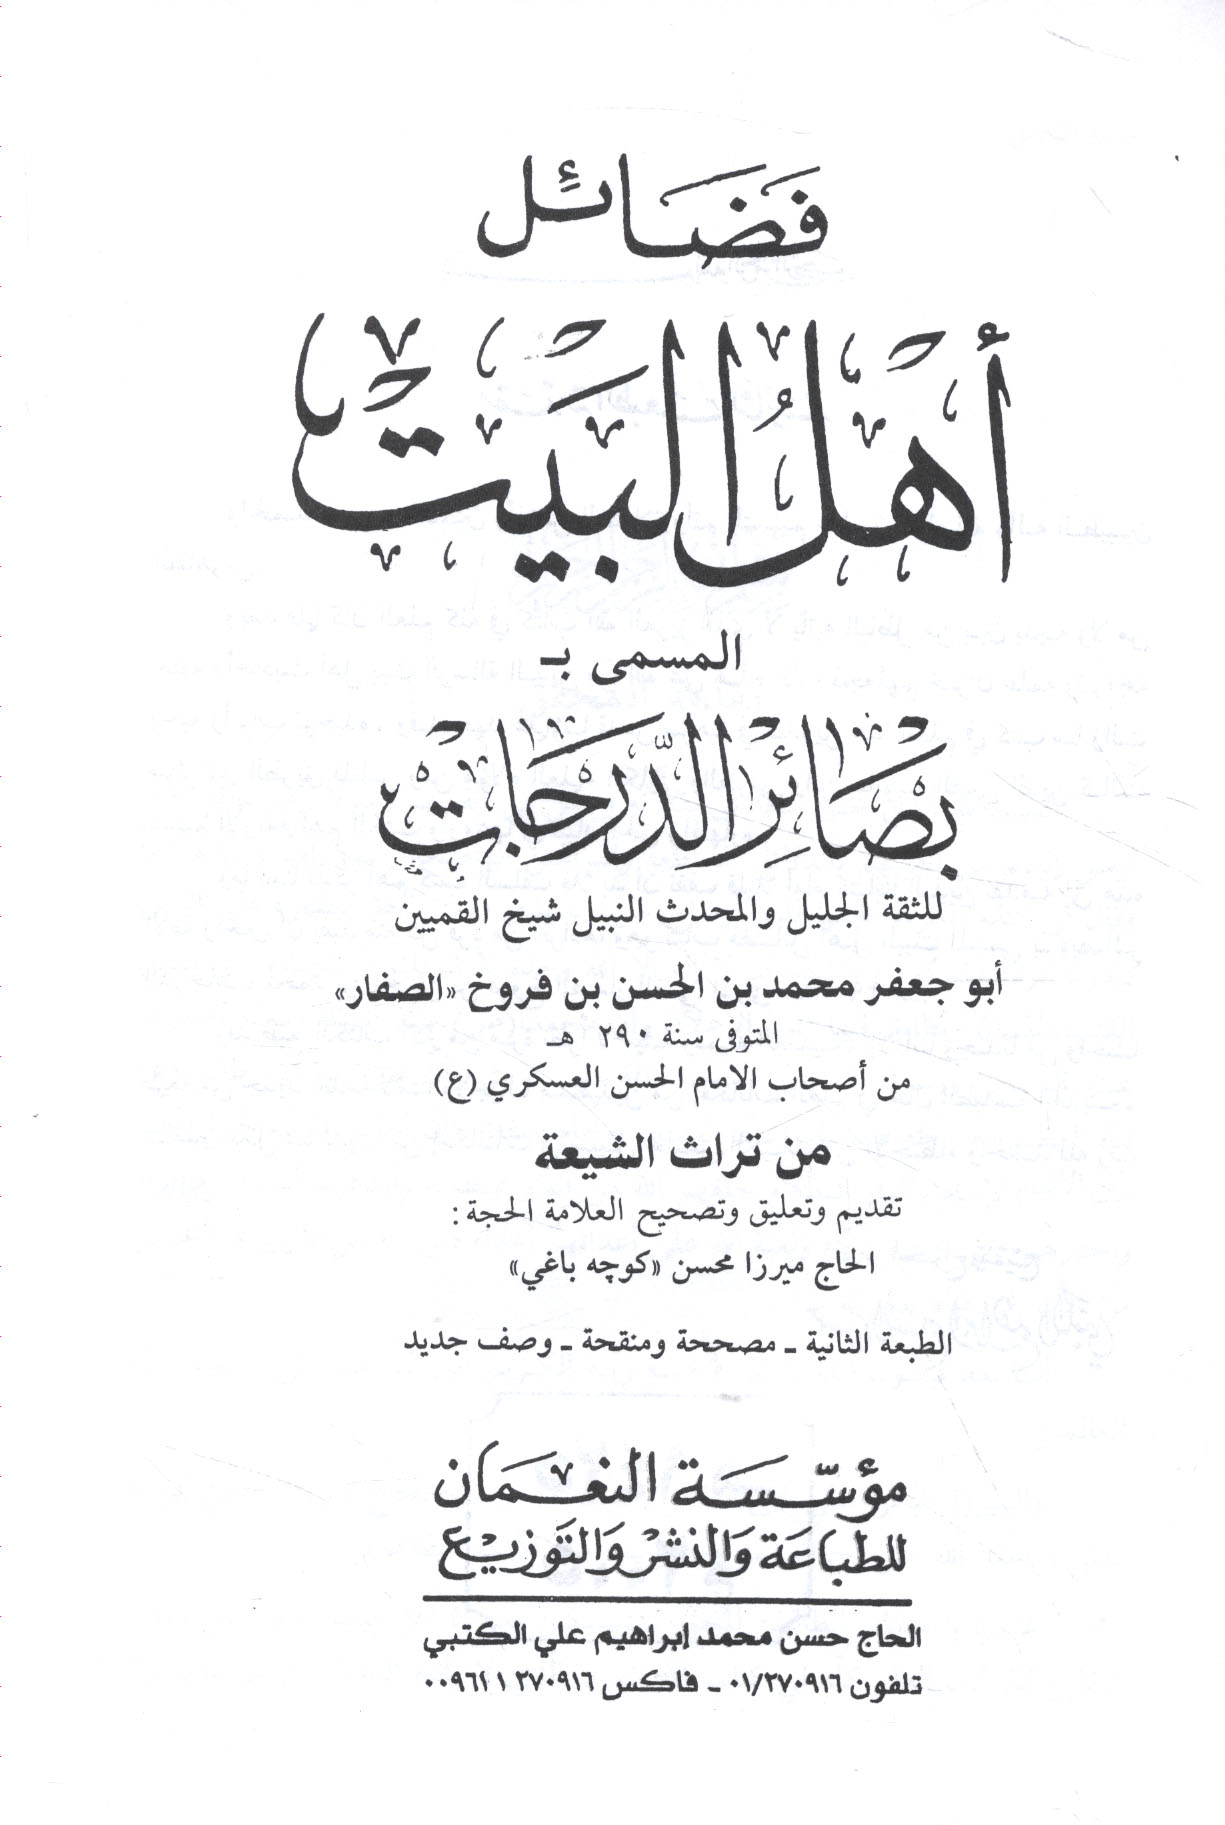 فضائل
أهل البيت
المسمى بـ
بصائر الدرجات
للثقة الجليل والمحدث النبيل شيخ القميين
أبو جعفر محمد بن الحسن بن فروخ «الصفار»
المتوفى سنة ٢٩٠ هـ
من أصحاب الامام الحسن العسكري (ع)
من تراث الشيعة
تقديم وتعليق وتصحيح العلامة الحجة:
الحاج ميرزا محسن «كوچه باغي»
الطبعة الثانية ـ مصححة ومنقحة ـ وصف جديد
مؤسّسة النعمان
للطباعة والنشر والتوزيع
الحاج حسن محمد إبراهيم علي الكتبي
تلفون ٠١/٢٧٠٩١٦ ـ فاكس ٠٠٩٦١ ١ ٢٧٠٩١٦